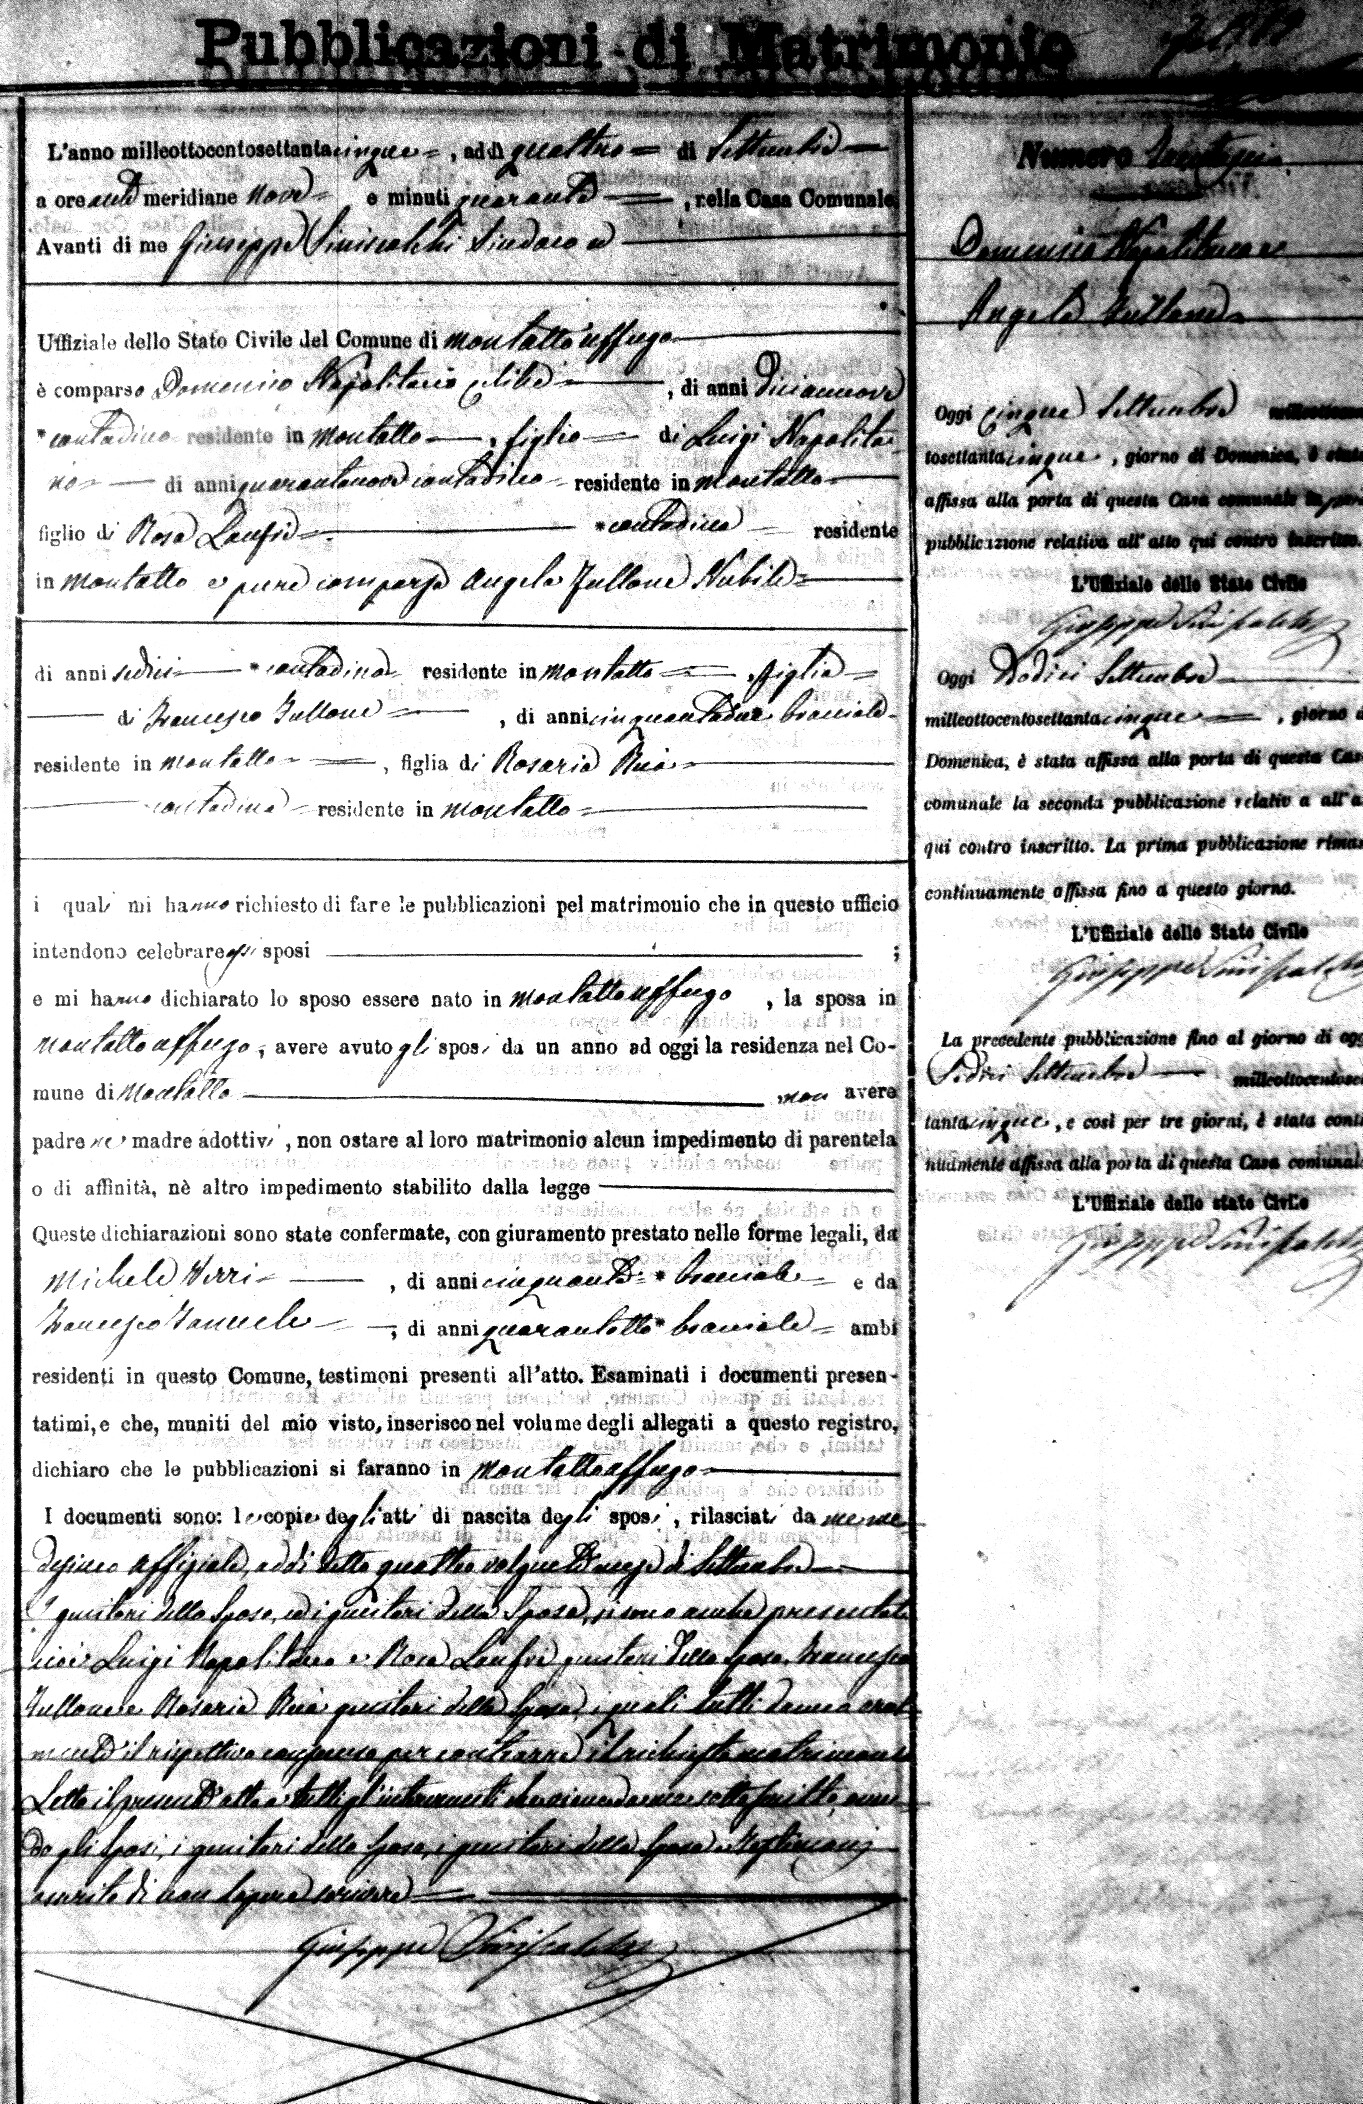 Pubblicazioni di Matrimonio
L'anno milleottocentosettantacinque, addì quattro di Settembre
a ore ante meridiane nove e minuti quaranta, nella Casa Comunale
Avanti di me Giuseppe Siniscalchi Sindaco ed
Uffiziale dello Stato Civile del Comune di Montalto Uffugo
è comparso Domenico Napolitano celibe, di anni diciannove
contadino residente in Montalto, figlio di Luigi Napolita
no di anni quarantanove contadino residente in Montalto
figlio di Rosa contadina residente
in Montalto e pure comparsa Angela Tullone Nubile
di anni sedici contadina residente in Montalto figlia
di Francesco Tullone, di anni cinquantadue bracciale
residente in Montalto, figlia di Rosaria
contadina residente in Montalto
i quali mi hanno richiesto di fare le pubblicazioni pel matrimonio che in questo ufficio
intendono celebrare essi sposi ;
e mi hanno dichiarato lo sposo essere nato in Montalto Uffugo, la sposa in
Montalto Uffugo, avere avuto gli sposi da un anno ad oggi la residenza nel Co-
mune di Montalto non avere
padre nè madre adottivi, non ostare al loro matrimonio alcun impedimento di parentela
o di affinità, nè altro impedimento stabilito dalla legge
Queste dichiarazioni sono state confermate, con giuramento prestato nelle forme legali, da
Michele, di anni cinquanta bracciale e da
Francesco, di anni quarantotto bracciale ambi
residenti in questo Comune, testimoni presenti all'atto. Esaminati i documenti presen-
tatimi, e che, muniti del mio visto, inserisco nel volume degli allegati a questo registro,
dichiaro che le pubblicazioni si faranno in Montalto Uffugo
I documenti sono: le copie degli atti di nascita degli sposi, rilasciati da me me
desimo uffiziale, addi detto quattro volgente mese di Settembre
I genitori dello Sposo, ed i genitori della Sposa, si sono anche presentati
cioè Luigi Napolitano e Rosa genitori dello Sposo, Francesco
Tullone e Rosaria genitori della Sposa, i quali tutti danno oral
mente il rispettivo consenso per contrarre il richiesto matrimonio
Letto il presente atto a tutti gl'intervenuti da me sottoscritto, aven
do gli Sposi, i genitori dello Sposo, i genitori della Sposa e Testimoni
asserito di non sapere scrivere
Giuseppe Siniscalchi
Numero
Domenico Napolitano e
Angela Tullone
Oggi cinque Settembre milleottocen
tosettantacinque, giorno di Domenica, è stata
affissa alla porta di questa Casa comunale la prima
pubblicazione relativa all'atto qui contro inscritto.
L'Uffiziale dello Stato Civile
Giuseppe Siniscalchi
Oggi Dodici Settembre
milleottocentosettantacinque, giorno di
Domenica, è stata affissa alla porta di questa Casa
comunale la seconda pubblicazione relativa all'atto
qui contro inscritto. La prima pubblicazione rimase
continuamente affissa fino a questo giorno.
L'Uffiziale dello Stato Civile
Giuseppe Siniscalchi
La precedente pubblicazione fino al giorno di oggi
Sedici Settembre milleottocentoset
tantacinque, e così per tre giorni, è stata conti
nuamente affissa alla porta di questa Casa comunale
L'Uffiziale dello stato Civile
Giuseppe Siniscalchi